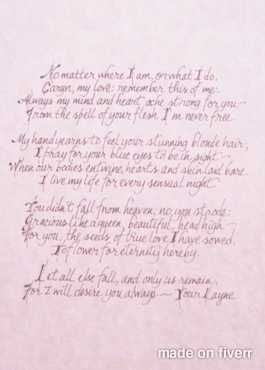 No matter where I am, or what I do,
Caryn, my love: remember this of me:
Always my mind and heart ache strong for you—
From the spell of your flesh I'm never free.
My hand yearns to feel your stunning blonde hair;
I pray for your blue eyes to be in sight
When our bodies entwine, hearts and skin laid bare
I live my life for every sensual night.
You didn't fall from heaven, no, you strode:
Gracious like a queen, beautiful, head high—
For you, the seeds of true love I have sowed.
I of lower for eternity hereby.
Let all else fall, and only us remain,
For I will desire you always — Your Layne
made on fiverr